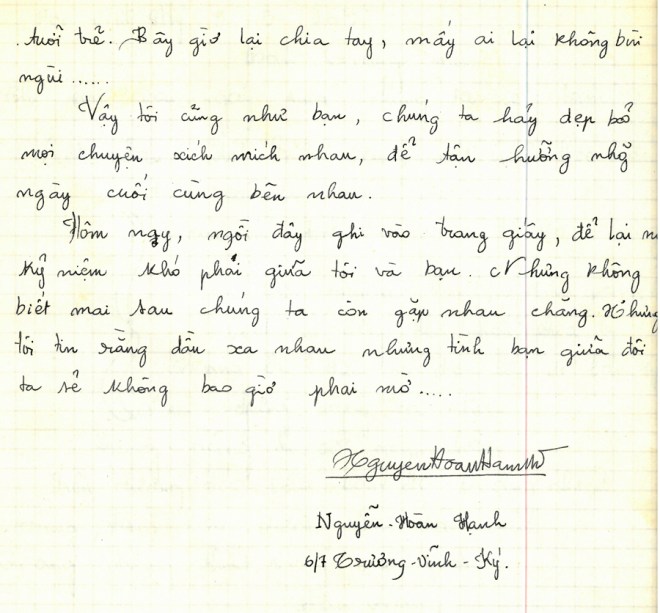 tuổi trẻ. Bây giờ lại chia tay, mấy ai lại không bùi
ngùi......
Vậy tôi cũng như bạn, chúng ta hãy dẹp bỏ
mọi chuyện xích mích nhau, để tận hưởng nhg̃
ngày cuối cùng bên nhau.
Hôm nay, ngồi đây ghi vào trang giấy, để lại
kỷ niệm khó phai giữa tôi và bạn. Nhưng không
biết mai sau chúng ta còn gặp nhau chăng. Nhưng
tôi tin rằng dầu xa nhau nhưng tình bạn giữa đôi
ta sẽ không bao giờ phai mờ.....
Nguyễn-Hoàn Hạnh
6/7 Trương-Vĩnh-Ký.